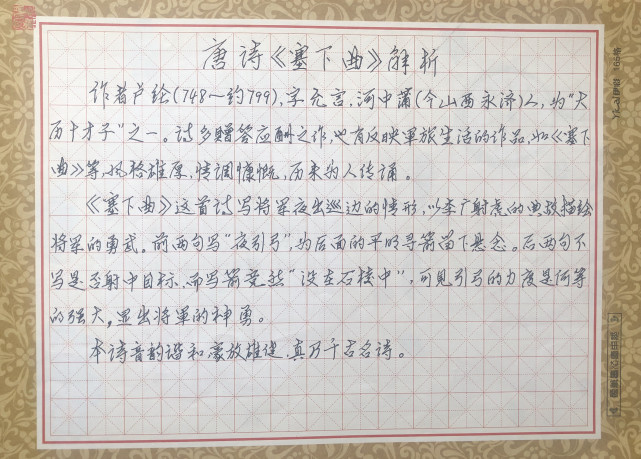 唐诗《塞下曲》解析
作者卢纶(748～约799),字允言,河中蒲(今山西永济)人,为“大
历十才子”之一。诗多赠答应酬之作,也有反映军旅生活的作品,如《塞下
曲》等,风格雄厚,情调慷慨,历来为人传诵。
《塞下曲》这首诗写将军夜出巡边的情形,以李广射虎的典故描绘
将军的勇武。前两句写“夜引弓”,为后面的平明寻箭留下悬念。后两句不
写是否射中目标,而写箭竟然“没在石棱中”,可见引弓的力度是何等
的强大,显出将军的神勇。
本诗音韵谐和豪放雄健,真乃千古名诗。